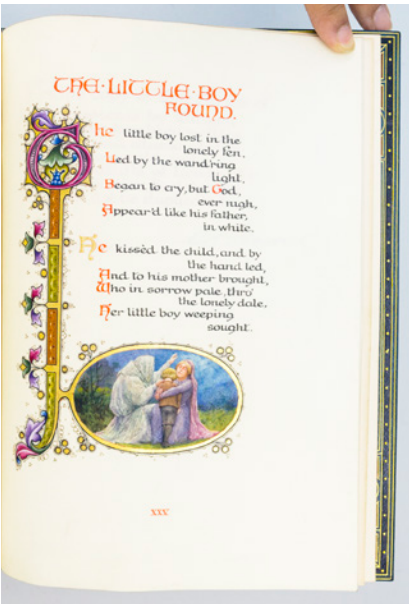 THE·LITTLE·BOY
FOUND.
The little boy lost in the
lonely fen,
Led by the wand'ring
light,
Began to cry, but God,
ever nigh,
Appear'd like his father,
in white.
He kissèd the child, and by
the hand led,
And to his mother brought,
Who in sorrow pale, thro'
the lonely dale,
Her little boy weeping
sought.
XXX